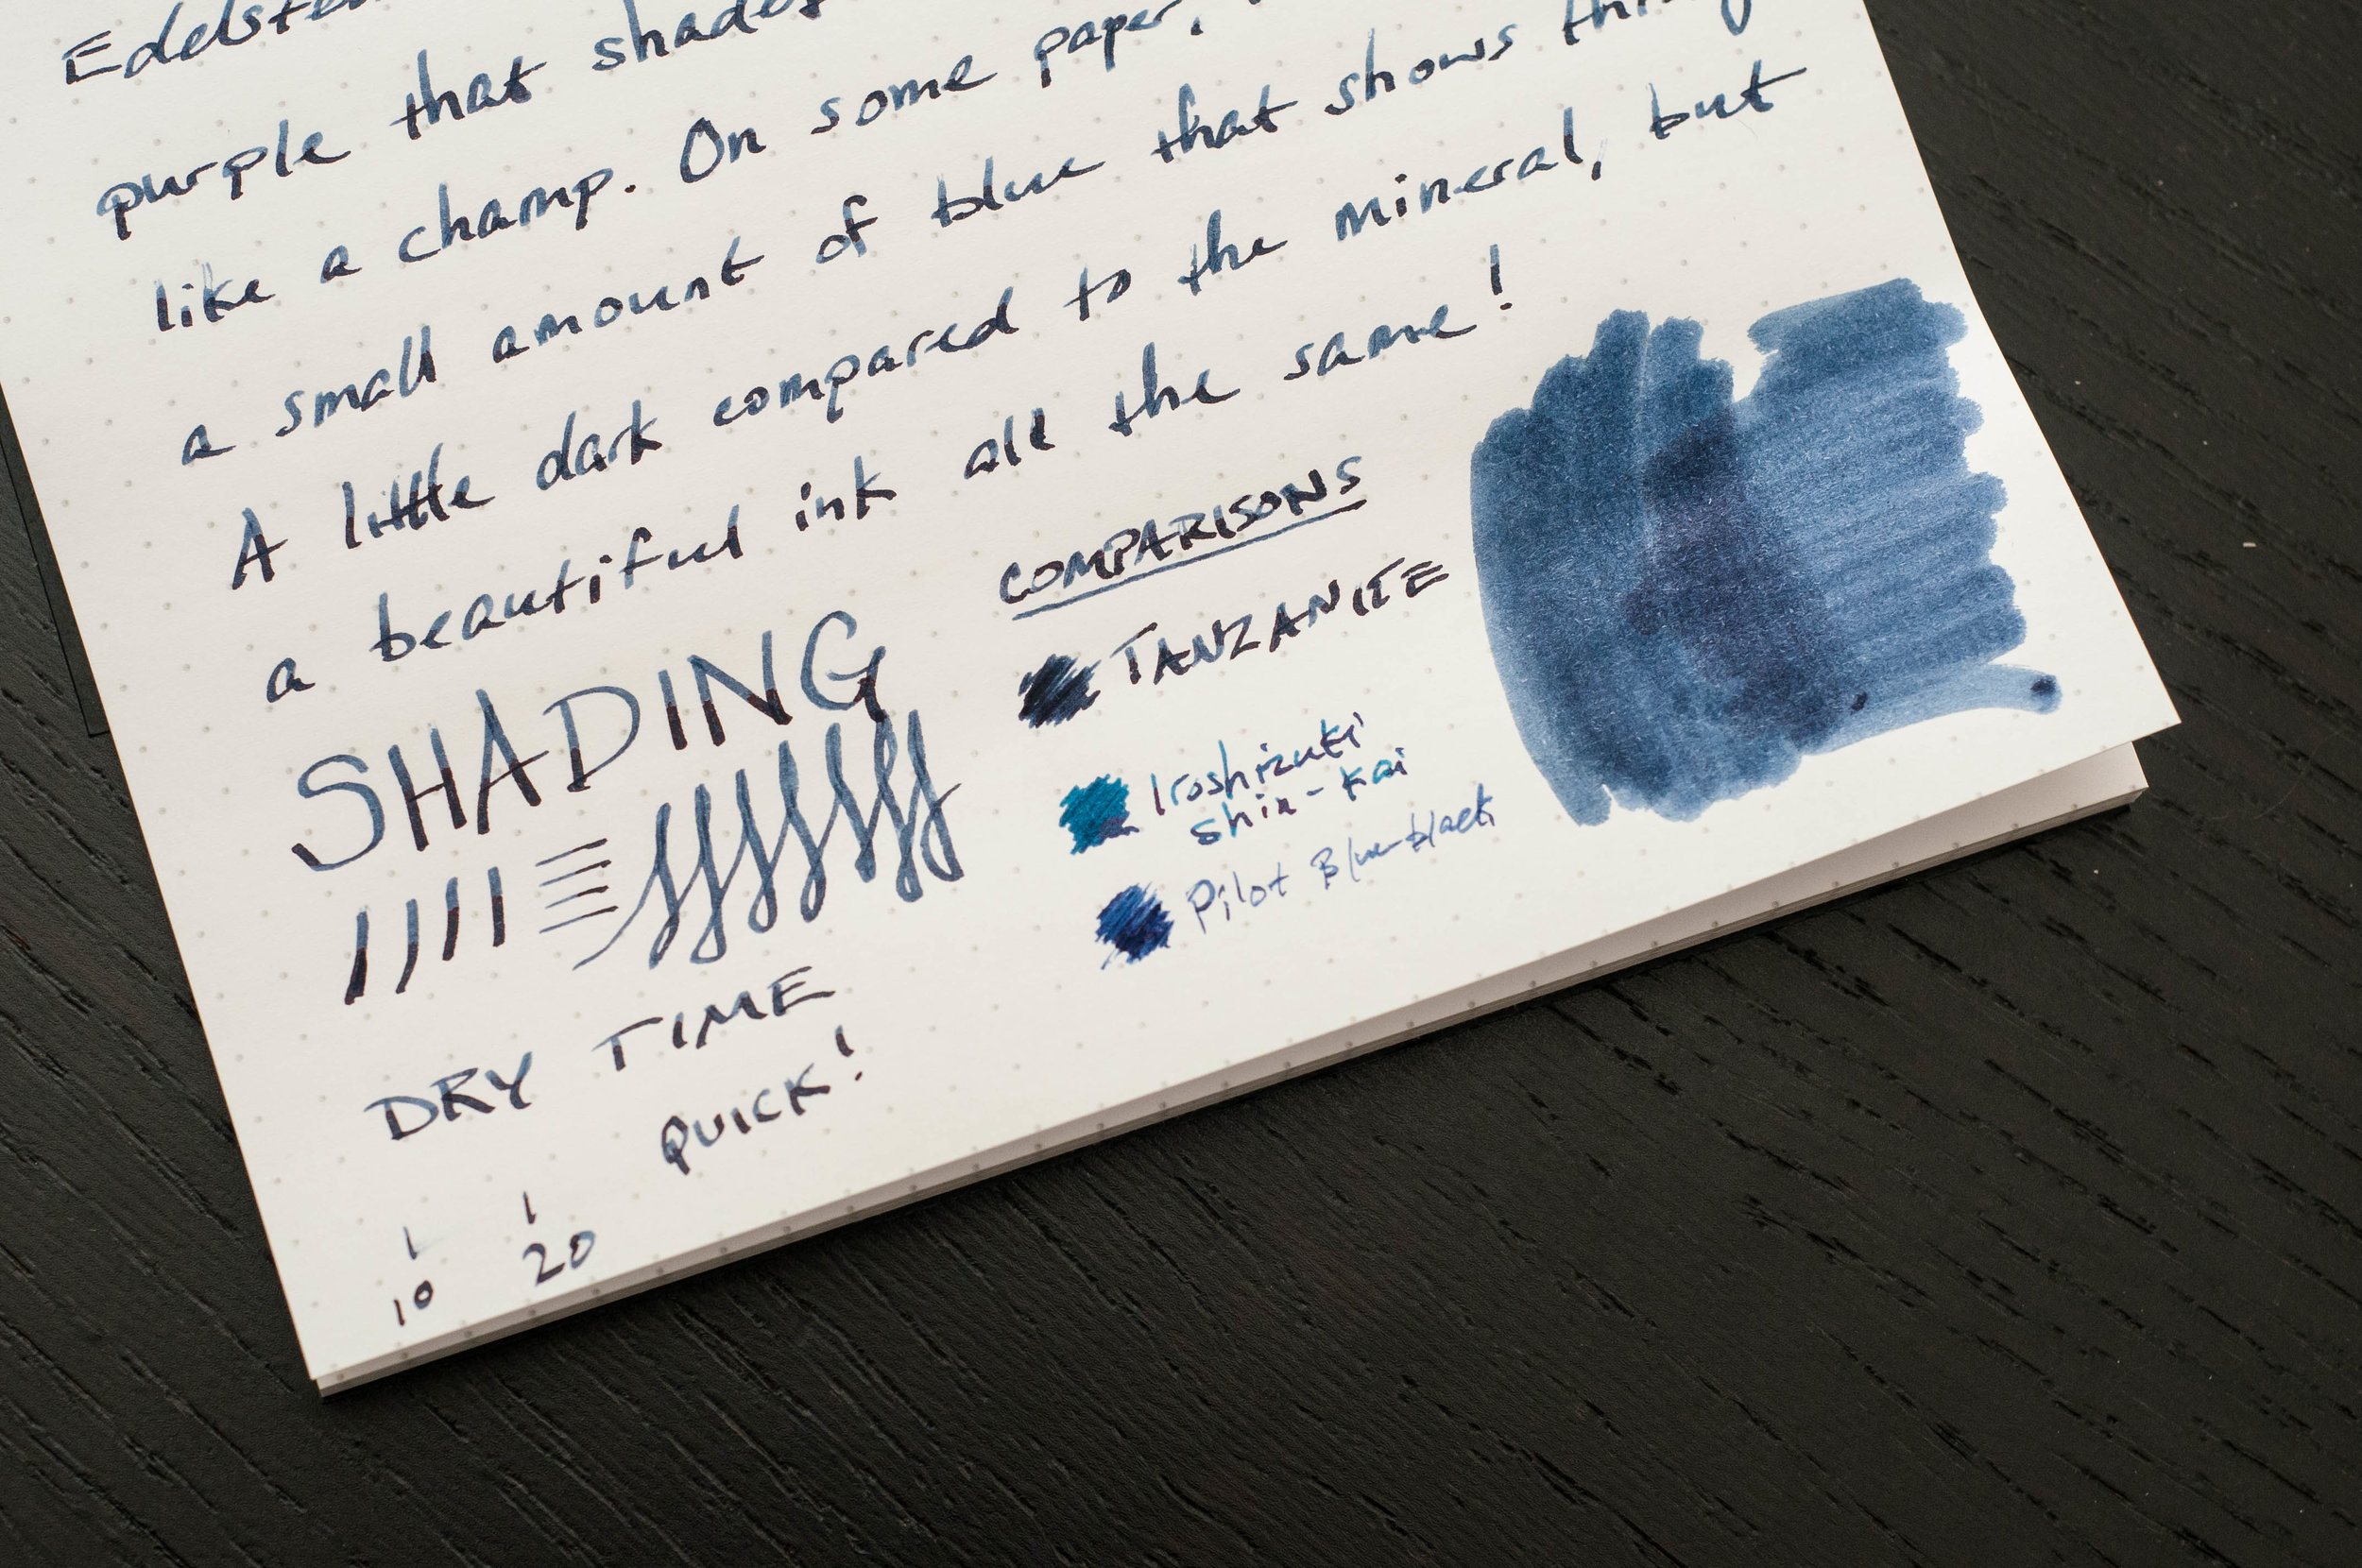 purple that shades
like a champ. On some paper,
a small amount of blue that shows
A little dark compared to the mineral, but
a beautiful ink all the same!
COMPARISONS
TANZANITE
Iroshizuki
shin-kai
Pilot Blue-black
SHADING
DRY TIME
QUICK!
10 20